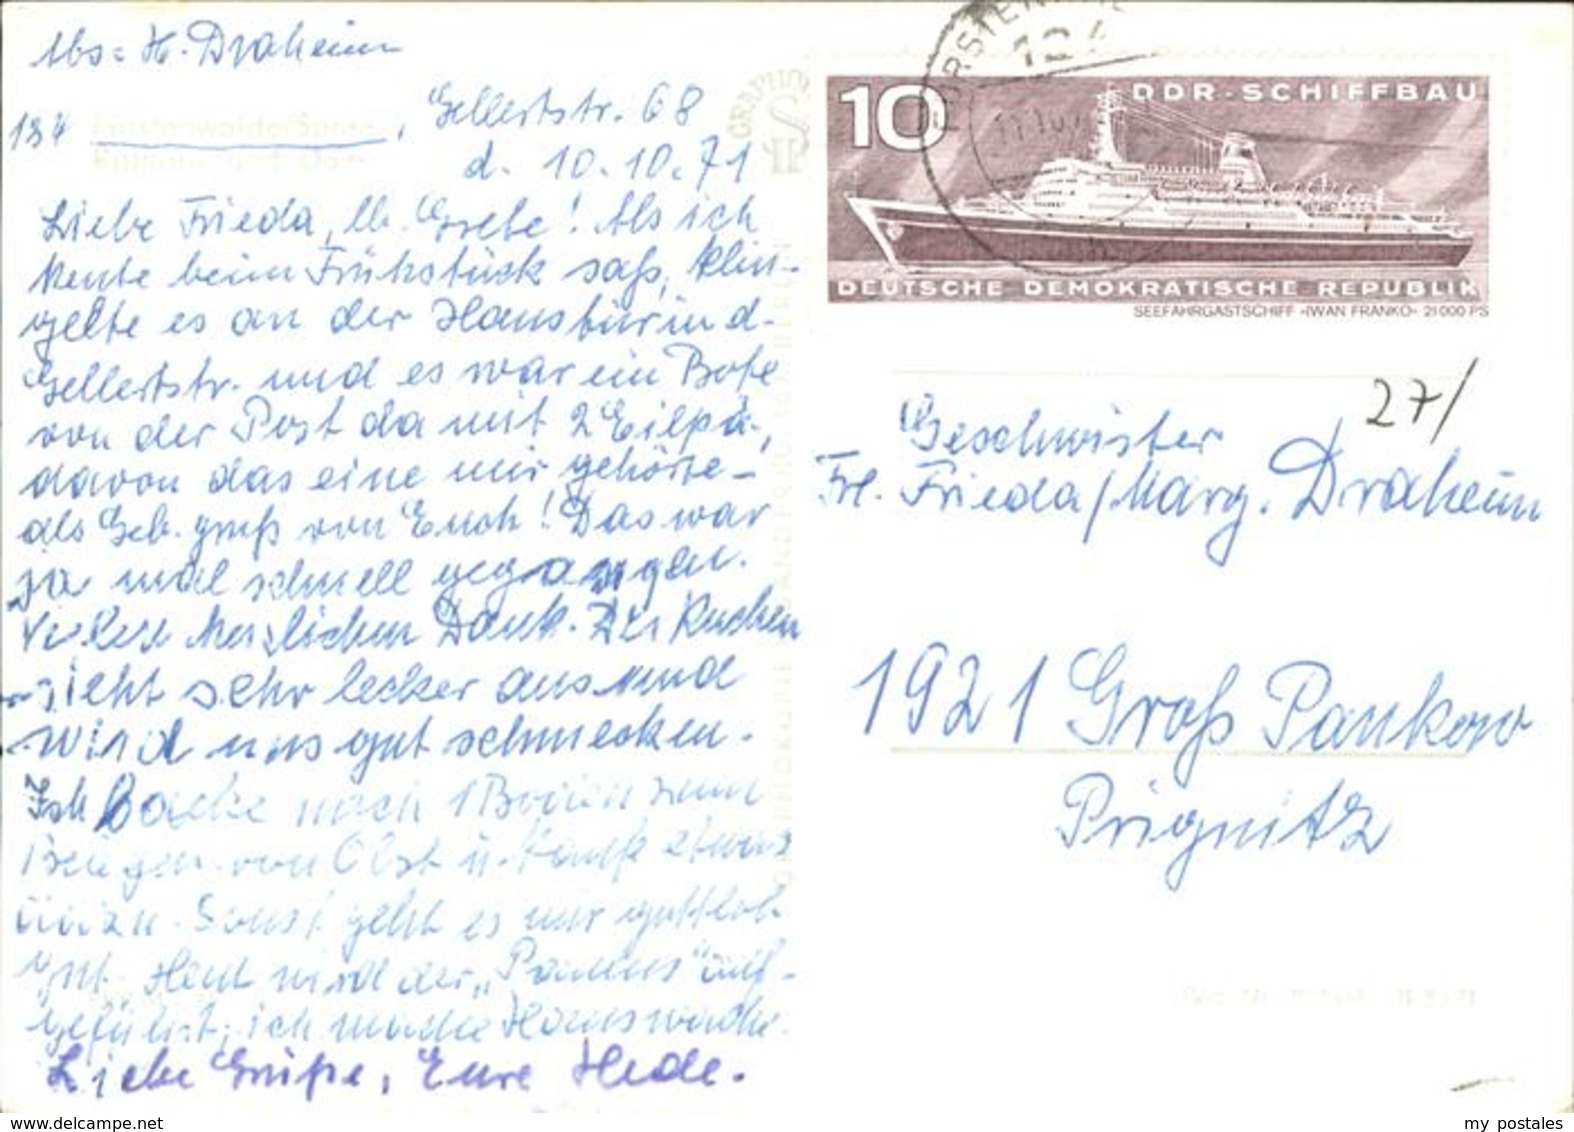 Abs: H. Draheim
Gellertstr. 68
134 Fürstenwalde/Spree,
d. 10.10.71
Liebe Frieda, lb. Grete! Als ich
heute beim Frühstück saß, klin-
gelte es an der Haustür in d.
Gellertstr. und es war ein Bote
von der Post da mit 2 Eilpä.,
davon das eine mir gehörte –
als Geb. gruß von Euch! Das war
ja mal schnell gegangen.
Vielen herzlichen Dank. Der Kuchen
sieht sehr lecker aus und
wird uns gut schmecken.
Ich backe noch 1 Boden zum
Belegen von Obst u. kaufe etwas
dazu. Sonst geht es mir gottlob
gut. Heut wird der „Paulus" auf-
geführt, ich mache Hauswache.
Liebe Grüße, Eure Hede.
GRAPHO
FÜRSTENWALDE
10
DDR-SCHIFFBAU
DEUTSCHE DEMOKRATISCHE REPUBLIK
SEEFAHRGASTSCHIFF »IWAN FRANKO« 21000 PS
27/
Geschwister
Frl. Frieda/Marg. Draheim
1921 Groß Pankow
Prignitz
my postales